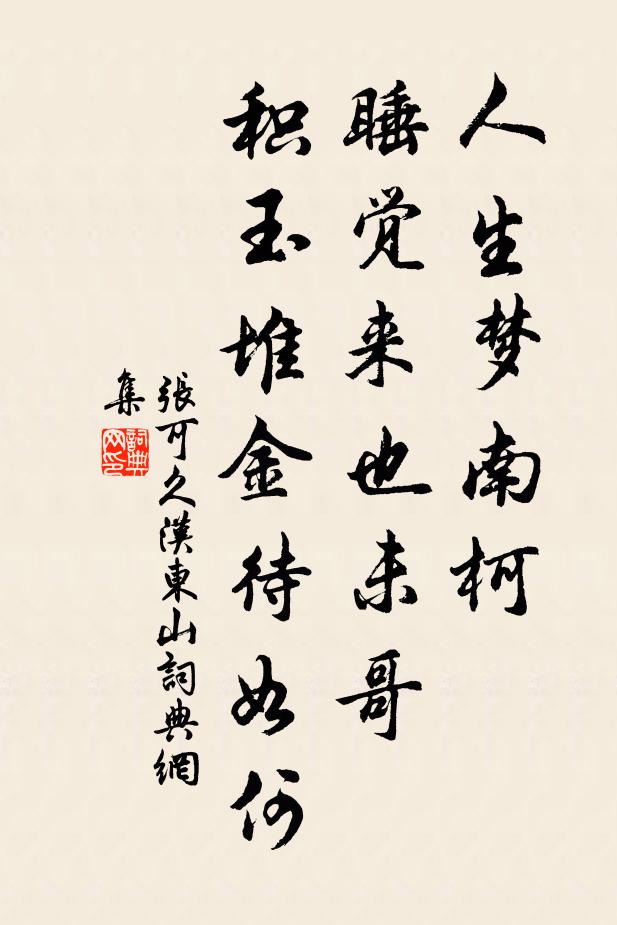 人生梦南柯
睡觉来也未哥
积玉堆金待如何
張可久漢東山詞典網
集
詞典网印